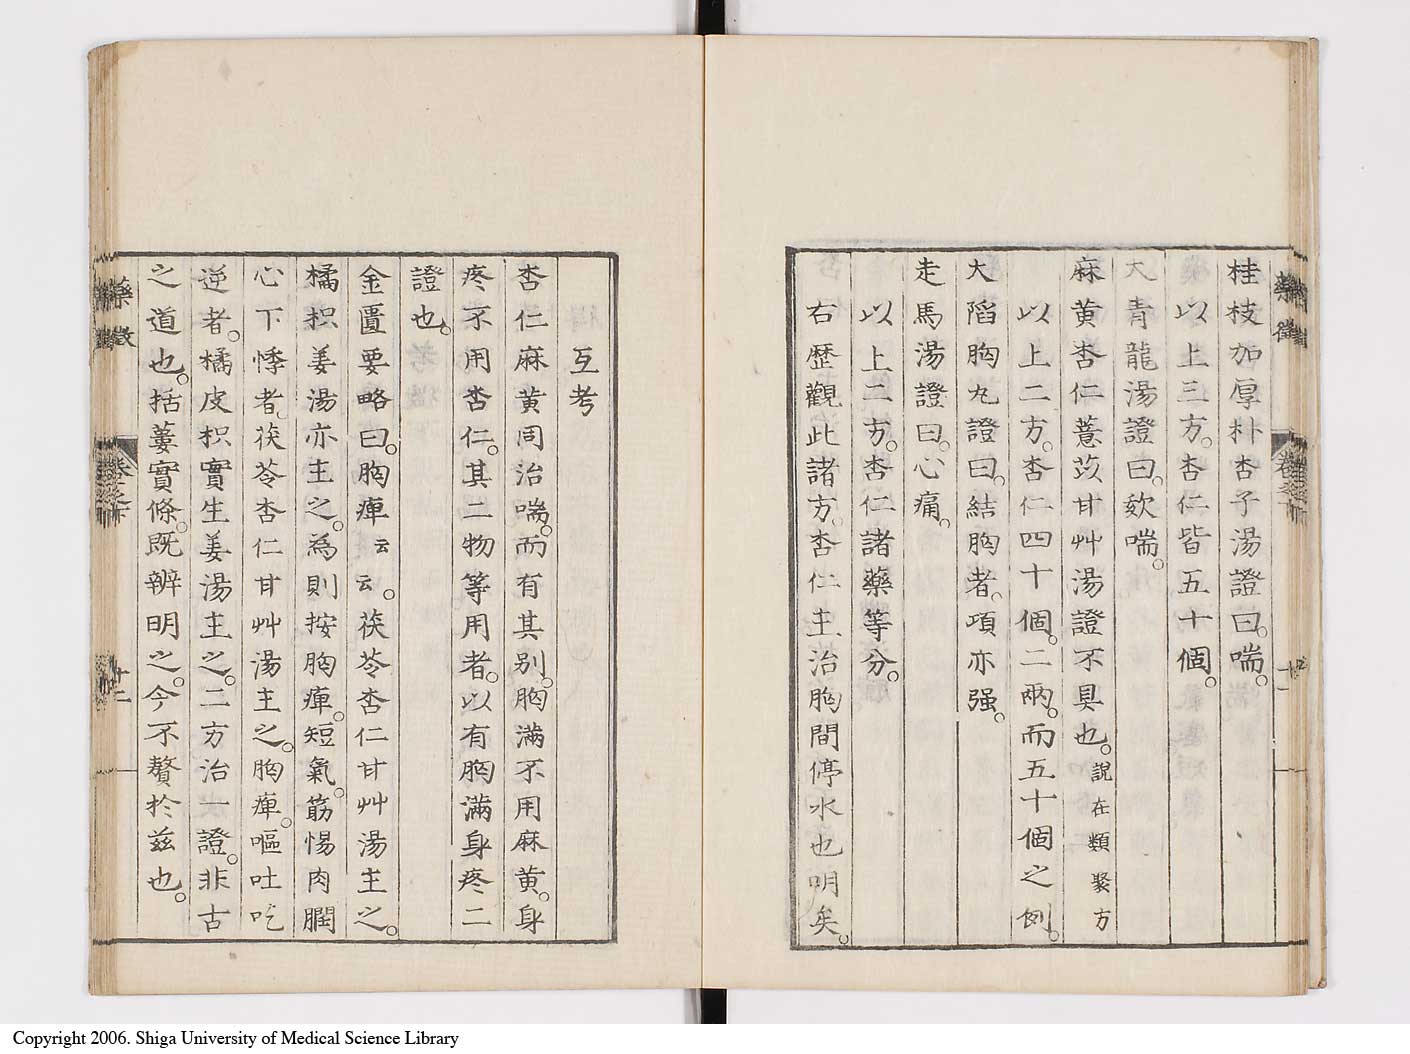 桂枝加厚朴杏子湯證曰。喘。
以上三方。杏仁皆五十個。
大青龍湯證曰。欬喘。
麻黃杏仁薏苡甘艸湯證不具也。說在類聚方
以上二方。杏仁四十個。二兩。而五十個之例。
大陷胸丸證曰。結胸者。項亦强。
走馬湯證曰。心痛。
以上二方。杏仁諸藥等分。
右歷觀此諸方。杏仁主治胸間停水也明矣。
互考
杏仁麻黃同治喘。而有其別。胸滿不用麻黃。身
疼不用杏仁。其二物等用者。以有胸滿身疼二
證也。
金匱要略曰。胸痺云云。茯苓杏仁甘艸湯主之。
橘枳姜湯亦主之。爲則按胸痺。短氣。筋惕肉瞤
心下悸者。茯苓杏仁甘艸湯主之。胸痺。嘔吐吃
逆者。橘皮枳實生姜湯主之。二方治一證。非古
之道也。括蔞實條。既辨明之。今不贅於茲也。
藥徵
卷之下
十二
Copyright 2006. Shiga University of Medical Science Library